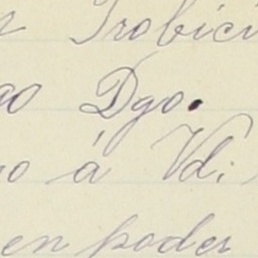 Trobici
go Dgo.
o á Vd:
en poder